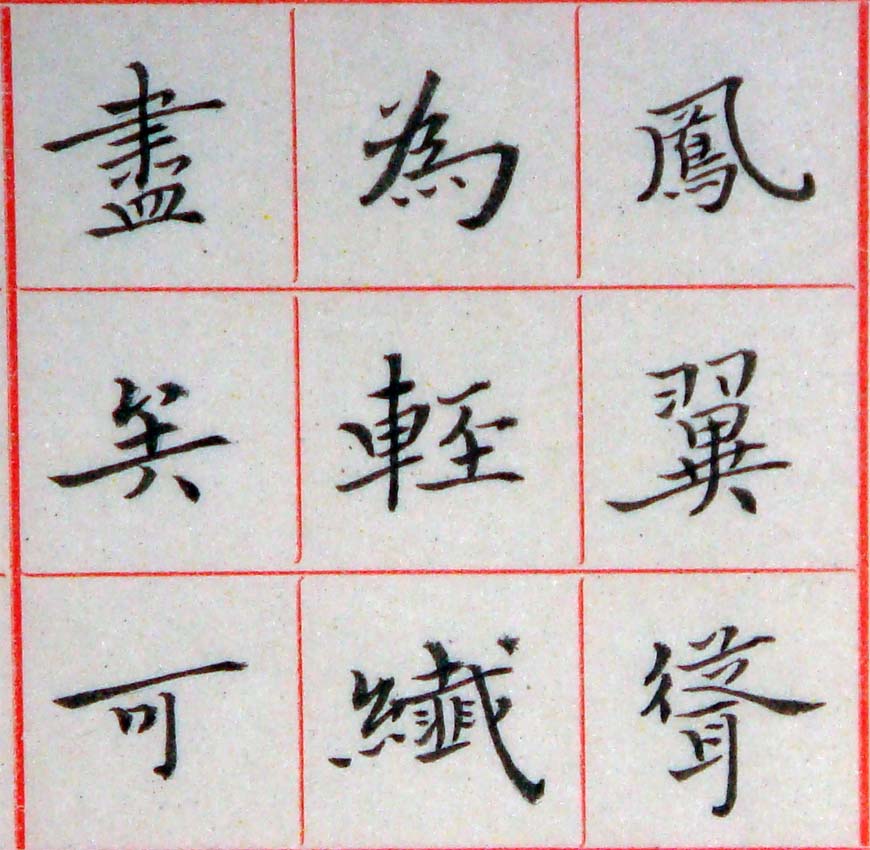 鳳翼聳
為輕纖
盡矣可